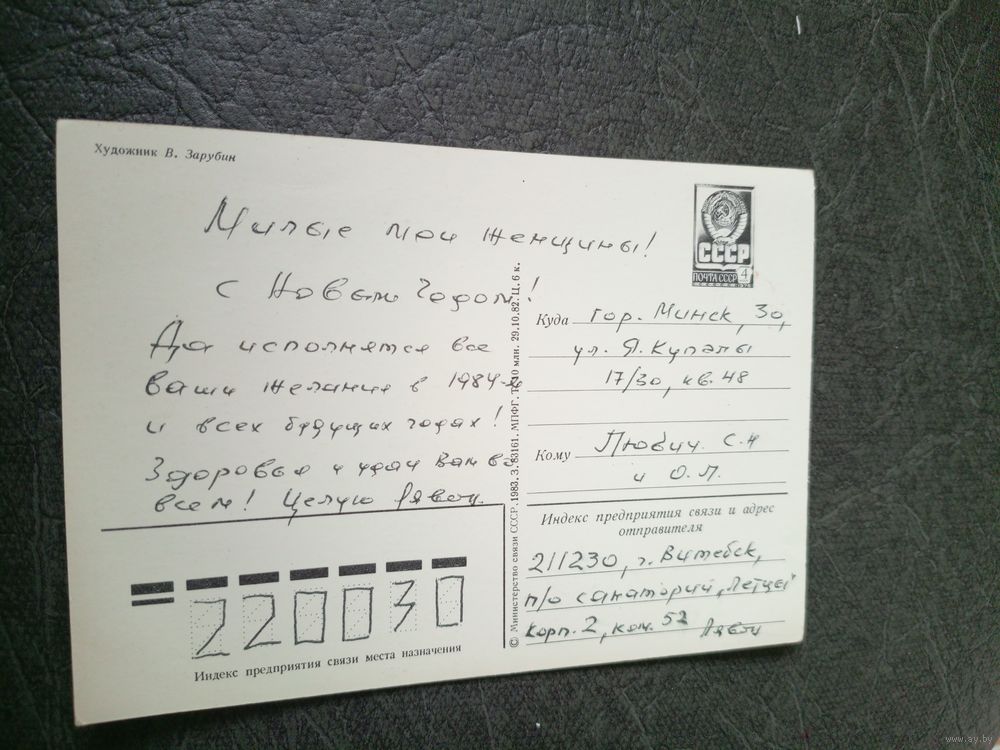 Художник В. Зарубин
Милые мои женщины!
С Новым Годом!
Да исполнятся все
ваши желания в 1984-м
и всех будущих годах!
Здоровья и удачи Вам во
всем! Целую
220030
Индекс предприятия связи места назначения
© Министерство связи СССР. 1983. З. 83161. МПФГ. Т. 10 млн. 29.10.82. Ц. 6 к.
СССР
ПОЧТА СССР 4
Куда гор. Минск, 30,
ул. Я. Купалы
17/30, кв. 48
Кому
и О.Л.
Индекс предприятия связи и адрес
отправителя
211230, г. Витебск,
п/о санаторий „Летцы"
корп. 2, ком. 52
www.ay.by